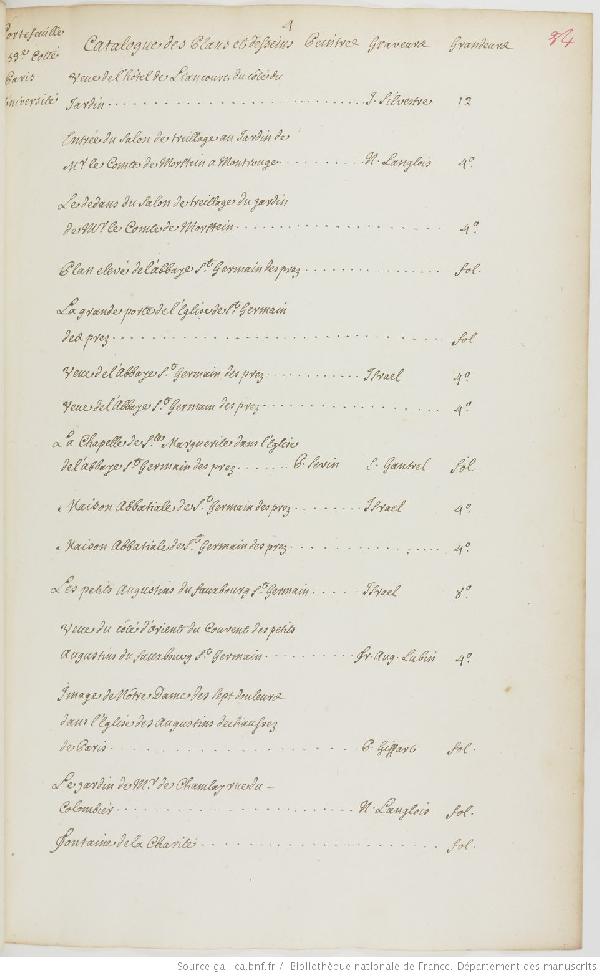 4
34
Portefeuille
59e Cotté
Paris
Université
Catalogue des Plans et desseins Peintres Graveurs Grandeurs
Veüe de l'hôtel de Liancourt du côté du
Jardin I. Silvestre 12
Entrée du Salon de treillage au Jardin de
Mr. le Comte de Morstein a Montrouge N. Langlois 4o.
Le dedans du Salon de treillage du jardin
de Mr. le Comte de Morstein 4o.
Plan elevé de l'abbaye St. Germain des prez fol.
La grande porte de l'Eglise de St. Germain
des prez fol
Veüe de l'Abbaye St. Germain des prez Israel 4o.
Veüe de l'Abbaye St. Germain des prez 4o.
La Chapelle de Ste. Marguerite dans l'Eglise
de l'abbaye St. Germain des prez P. Sevin E. Gantrel fol.
Maison Abbatiale de St. Germain des prez Israel 4o.
Maison Abbatiale de St. Germain des prez 4o.
Les petits Augustins du fauxbourg St. Germain Israel 8o.
Veüe du côté d'orient du Couvent des petits
Augustins du fauxbourg St. Germain Fr. Aug. Lubin 4o.
Image de Nôtre Dame des Sept douleurs
dans l'Eglise des Augustins dechaussez
de Paris P. Giffart fol.
Le jardin de Mr. de Chamlay rue du
Colombier N. Langlois fol.
Fontaine de la Charité fol.
Source gallica.bnf.fr / Bibliothèque nationale de France. Département des manuscrits